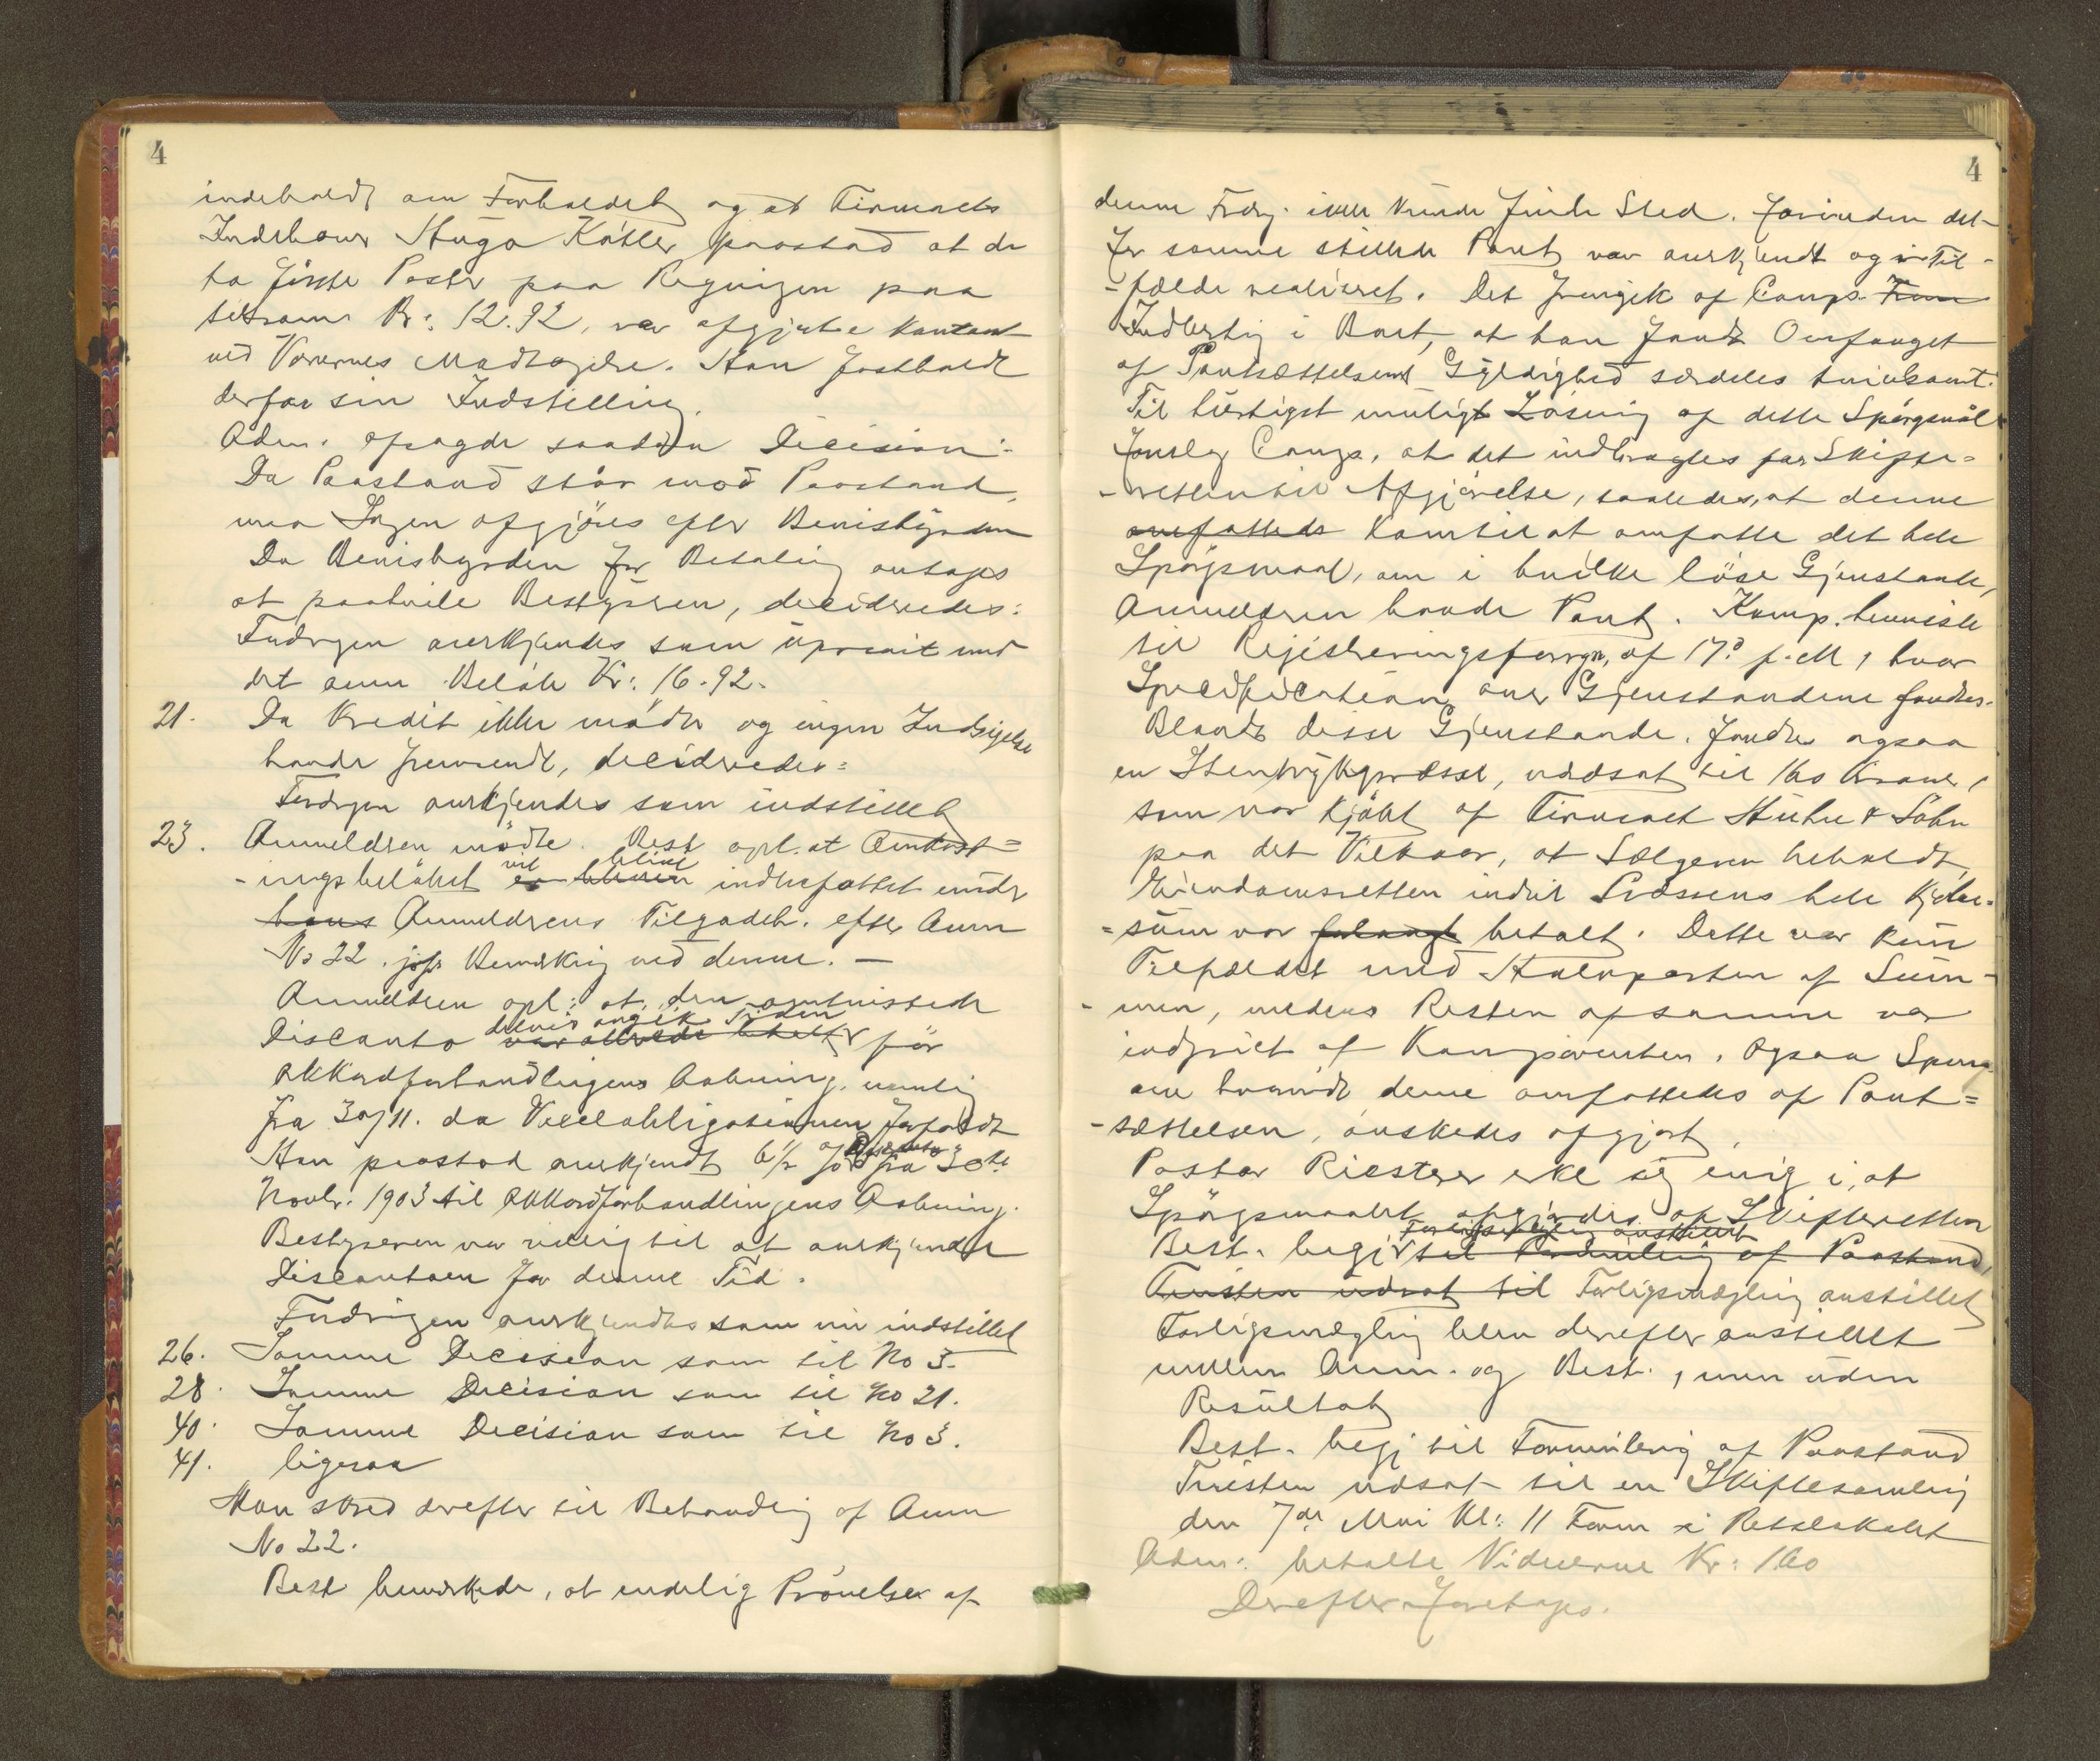 4
indeholdt om Forholdet og at Firmaets
Indehaver Hugo Kötler paastod at de
to første Poster paa Regningen paa
tilsam. Kr: 12.92, var afgjorte kontant
ved Varernes Modtagelse. Han fastholdt
derfor sin Indstilling.
Adm. afsagde saadan Decision:
Da Paastand står mod Paastand,
maa Sagen afgjöres efter Bevisbyrden
Da Bevisbyrden for Betaling antages
at paahvile Bestyreren, decideredes:
Fordringen anerkjendes som uprivit med
det anm. Belöb Kr: 16.92.
21. Da Kredit. ikke mödte og ingen Indsigelse
havde fremsendt, decideredes:
Fordrgen anerkjendes som indstillet
23. Anmelderen mödte. Best. opl. at Omkost=
-ingsbelöbet vil blive er bleven indbefattet under
hans Anmelderens Tilgodeh. efter Anm
No 22. jfr Bemærkning ved denne. —
Anmelderen opl: at den omtvistede
Disconto delvis angik Tiden var allerede betalt for
Akkordforhandlingens Aabning. nemlig
fra 30/11. da Vexelobligationen forfaldt
Han paastod anerkjendt 6½ % Disconto fra 30te
Novbr. 1903 til Akkordforhandlingens Aabning.
Bestyreren var villig til at anerkjende
Discontoen for denne Tid.
Fordringen anerkjendtes som nu indstillet
26. Samme Decision som til No 3.
28. Samme Decision som til No 21.
40. Samme Decision som til No 3.
41. ligesaa
Man skred derefter til Behandling af Anm
No 22.
Best. bemærkede, at endelig Prövelse af
4
denne Fordrg. ikke kunde finde Sted, forinden det
for samme stillede Pant var anerkjendt og i Til-
-fælde realiseret. Det fremgik af Comp.
Indlæg i Boet, at han fandt Omfanget
af Pantsættelsens Gyldighed særdeles tvivlsomt.
Til hurtigst muligt Løsning af dette Spörgsmål
foreslog Comp., at det indbragtes for Skifte=
-retten til Afgjörelse, saaledes, at denne
omfattede kom til at omfatte det hele
Spörgsmaal, om i hvilke löse Gjenstande,
Anmelderen havde Pant. Komp. henviste
til Registreringsforrgn. af 17. f. M, hvor
Specification over Gjenstandene fandtes.
Blandt disse Gjenstande fandtes ogsaa
en Stentrykpresse, værdsat til 160 Kroner,
som var kjöbt af Firmaet Huhn & Söhn
paa det Vilkaar, at Sælgeren beholdt
Eiendomsretten indtil Pressens hele Kjöbe=
=sum var betalt. Dette var kun
Tilfældet med Halvparten af Sum-
-men, medens Resten af samme var
indfriet af Komparenten. Ogsaa Spm.
om hvorvidt denne omfattedes af Pant=
-sættelsen, önskedes afgjort.
Pastor Riesterer erkl. sig enig i, at
Spörgsmaalet afgjordes af Skifteretten
Best. begj. Forligsmægling anstillet til Formulering af Paastand,
Tvisten udsat til Forligsmægling anstillet
Forligsmægling blev derefter anstillet
mellem Anm. og Best., men uden
Resultat
Best. begj til Formulering af Paastand
Tvisten udsat til en Skiftesamling
den 7de Mai Kl: 11 Form i Retslokalet
Adm: betalte Vidnerne Kr: 1.60
Derefter foretoges.